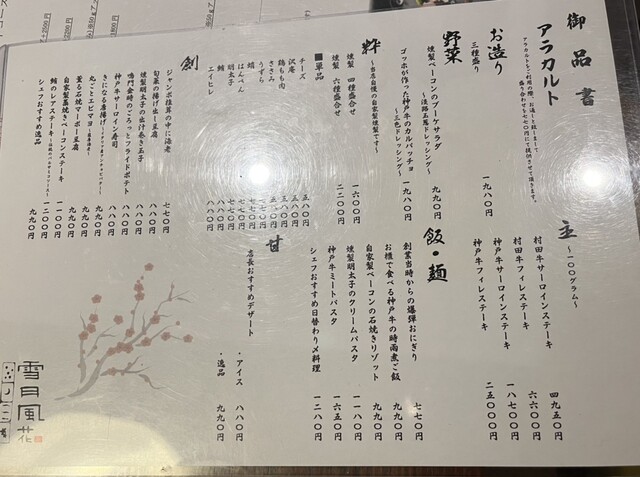 御品書
アラカルト
アラカルトをご利用の際、お通しと致しまして、
盛り合わせを七七〇円にて提供させて頂きます。
お造り
三種盛り 一九八〇円
野菜
燻製ベーコンのブーケサラダ
〜淡路玉葱ドレッシング〜 九九〇円
ゴッホが作った神戸牛のカルパッチョ
〜三色ドレッシング〜 一九八〇円
粋 〜当店自慢の自家製燻製です〜
燻製 三種盛合せ 一六〇〇円
燻製 六種盛合せ 二二〇〇円
■単品
チーズ 五八〇円
沢庵 三八〇円
鶏もも肉 五八〇円
ささみ
うずら
鯖
はんぺん
明太子 七七〇円
鮪
エイヒレ 八八〇円
創
ジャンボ椎茸の中に海老 七七〇円
旬菜の揚げ出し豆腐 八八〇円
燻製明太子の出汁巻き玉子 八八〇円
鳴門金時のごろっとフライドポテト 八八〇円
神戸牛サーロイン寿司 八八〇円
きになる唐揚げ
丸ごとエビマヨ 九九〇円
薫る石焼マーボー豆腐 九九〇円
自家製蒸焼きベーコンステーキ 一一〇〇円
鮪のレアステーキ 一二〇〇円
シェフおすすめ逸品 九九〇円
主 〜一〇〇グラム〜
村田牛サーロインステーキ 四九五〇円
村田牛フィレステーキ 六六〇〇円
神戸牛サーロインステーキ 一八七〇〇円
神戸牛フィレステーキ 二五〇〇〇円
飯・麺
創業当時からの爆弾おにぎり 七七〇円
お櫃で食べる神戸牛の時雨煮ご飯 九九〇円
自家製ベーコンの石焼きリゾット 九九〇円
燻製明太子のクリームパスタ 一一八〇円
神戸牛ミートパスタ 一六五〇円
シェフおすすめ日替わり〆料理 一二八〇円
甘
店長おすすめデザート
・アイス 八八〇円
・逸品 九九〇円
雪月風花